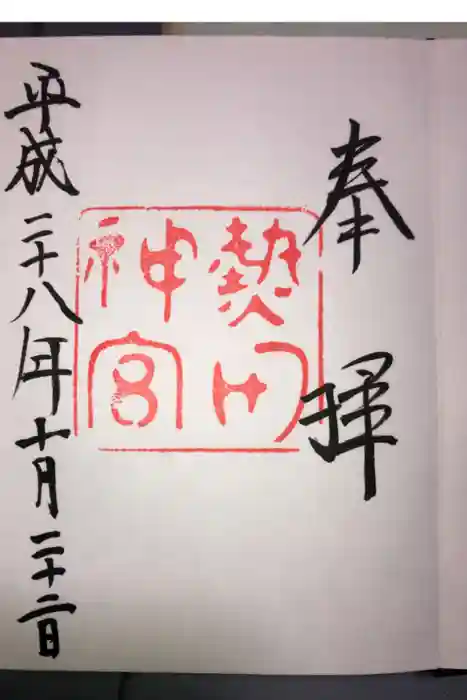 奉拝
熱田
神宮
平成二十八年十月二十二日